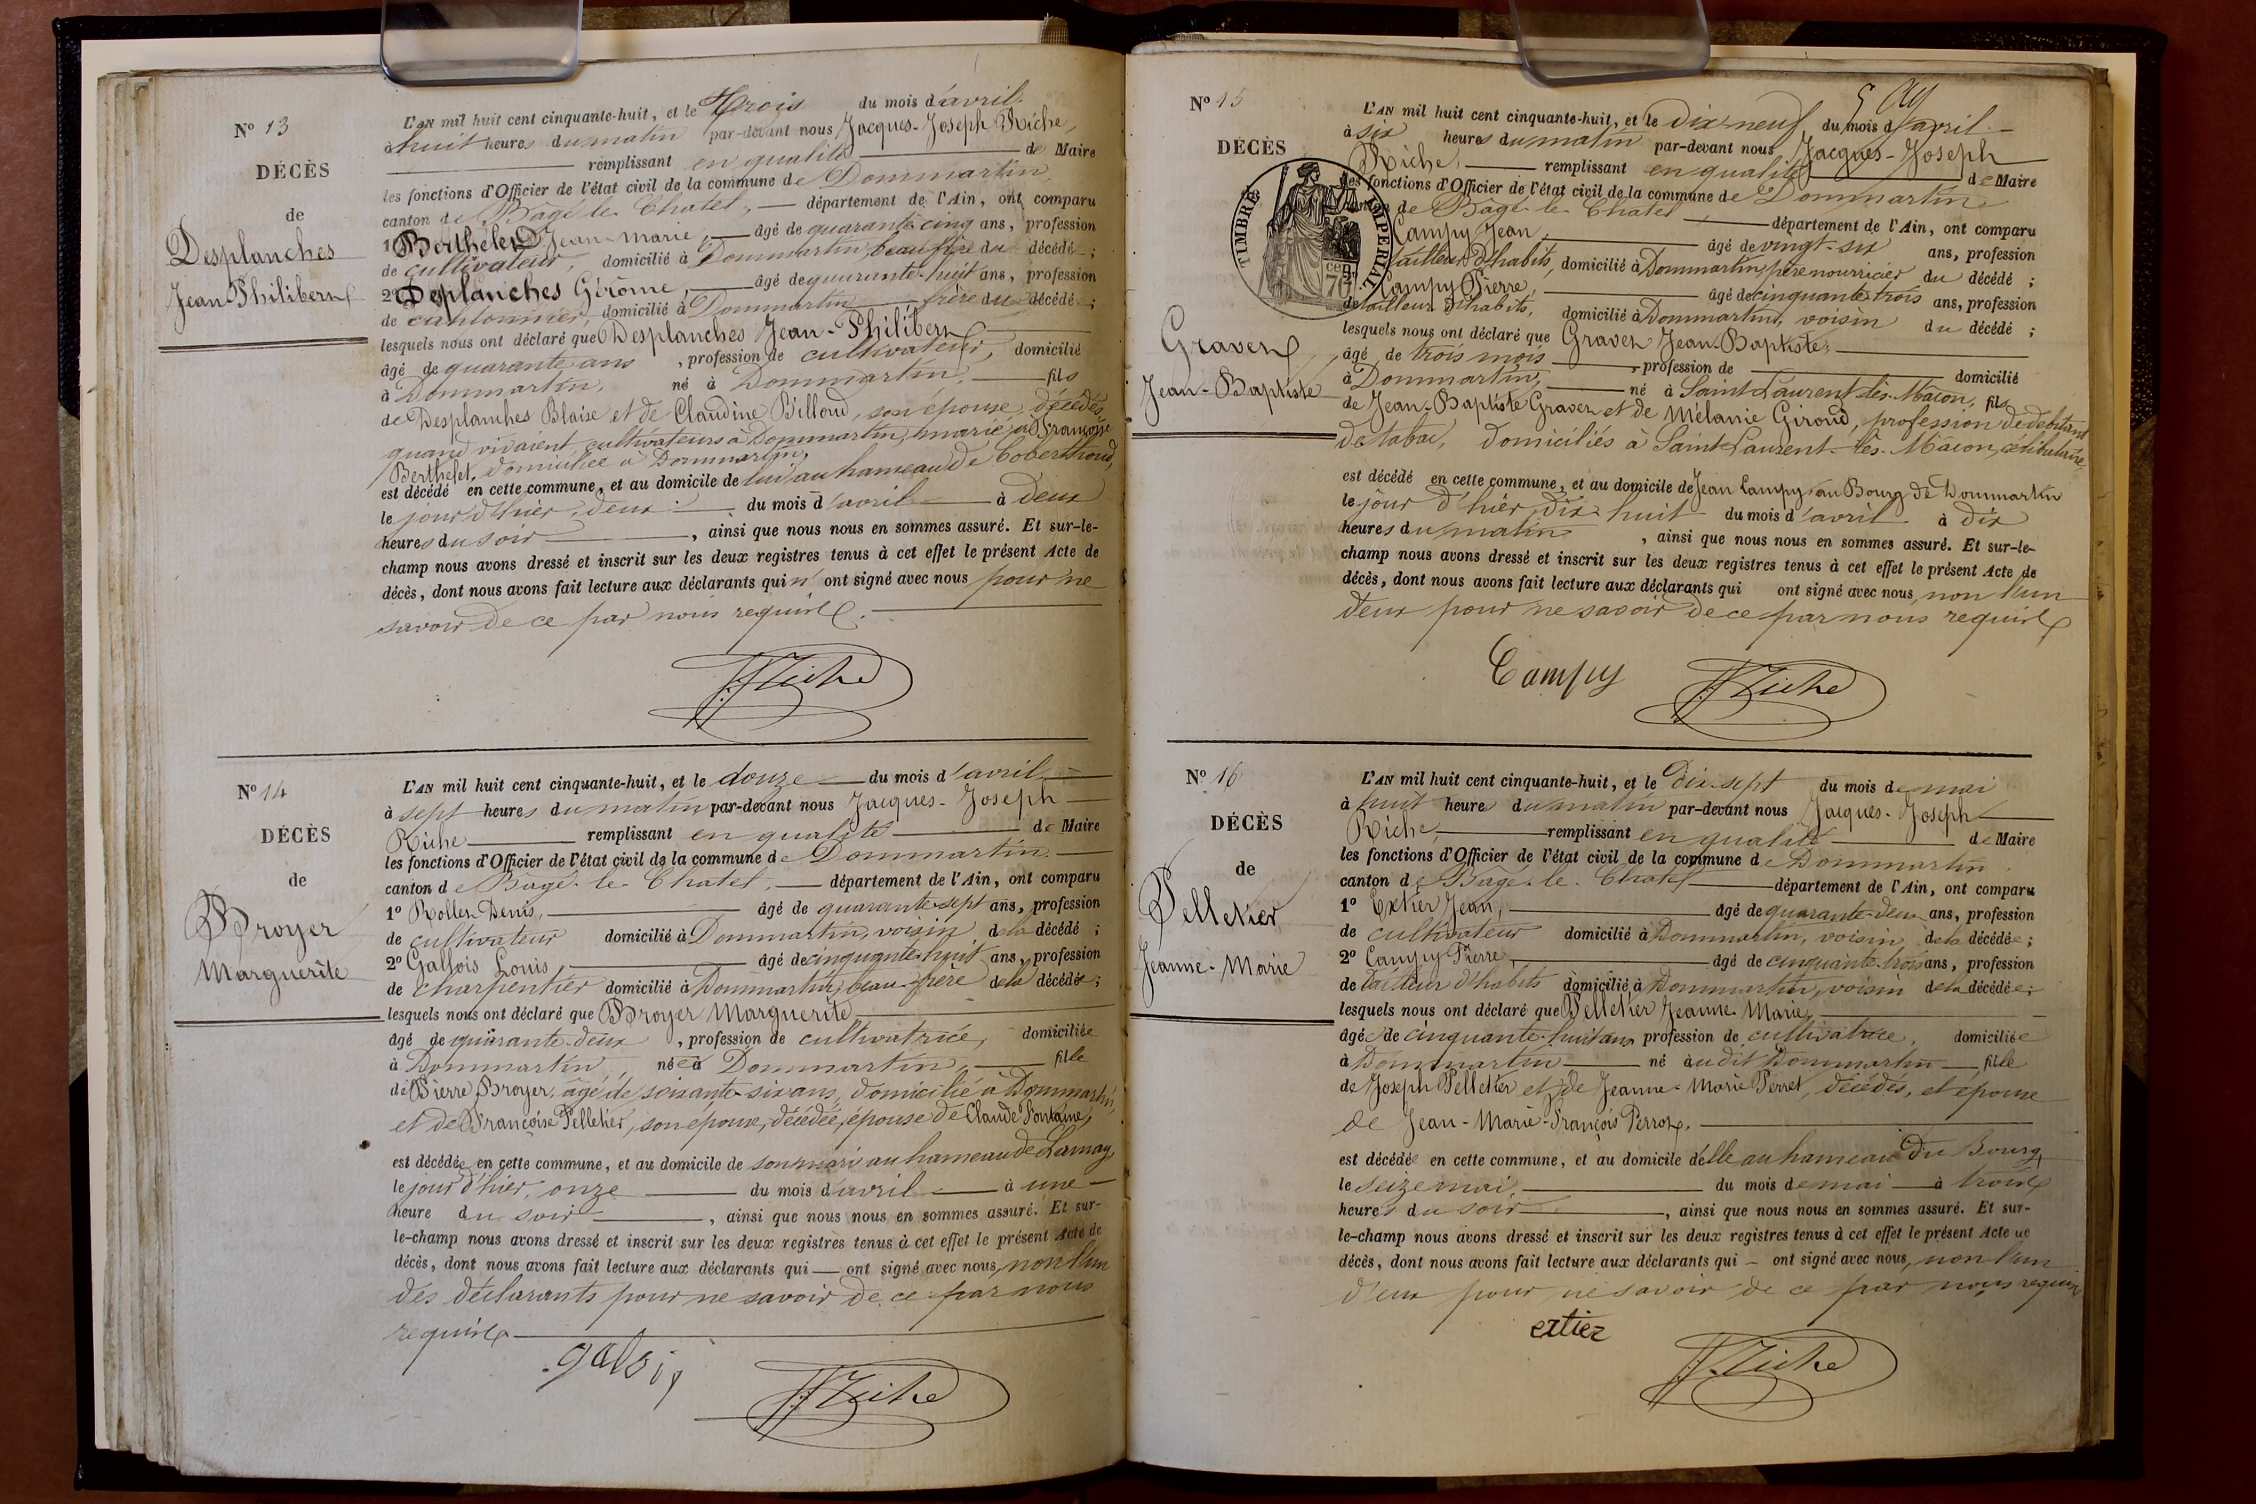 N° 13
DÉCÈS
de
Desplanches
Jean Philibert
L'AN mil huit cent cinquante-huit, et le trois du mois d'avril
à huit heures du matin par-devant nous Jacques-Joseph Riche,
remplissant en qualité de Maire
les fonctions d'Officier de l'état civil de la commune de Dommartin
canton de Bâgé le Chatel, département de l'Ain, ont comparu
1° Berthelet Jean-Marie, âgé de quarante cinq ans, profession
de cultivateur, domicilié à Dommartin, beau frère du décédé ;
2° Desplanches Gérôme, âgé de quarante-huit ans, profession
de cantonnier, domicilié à Dommartin frère du décédé ;
lesquels nous ont déclaré que Desplanches Jean-Philibert
âgé de quarante ans, profession de cultivateur, domicilié
à Dommartin, né à Dommartin, fils
de Desplanches Blaise et de Claudine Billoud, son épouse, décédés,
quand vivaient cultivateurs à Dommartin, marié à Françoise
Berthelet, domiciliée à Dommartin,
est décédé en cette commune, et au domicile de lui au hameau de Coberthoud,
le jour d'hier, deux du mois d'avril à deux
heures du soir, ainsi que nous nous en sommes assuré. Et sur-le-
champ nous avons dressé et inscrit sur les deux registres tenus à cet effet le présent Acte de
décès, dont nous avons fait lecture aux déclarants qui n'ont signé avec nous pour ne
savoir de ce par nous requis.
J. Riche
N° 14
DÉCÈS
de
Broyer
Marguerite
L'AN mil huit cent cinquante-huit, et le douze du mois d'avril
à sept heures du matin, par-devant nous Jacques-Joseph
Riche remplissant en qualité de Maire
les fonctions d'Officier de l'état civil de la commune de Dommartin
canton de Bagé-le-Chatel, département de l'Ain, ont comparu
1° Rollet Denis, âgé de quarante-sept ans, profession
de cultivateur domicilié à Dommartin, voisin de la décédé ;
2° Gallois Louis, âgé de cinquante-huit ans, profession
de charpentier domicilié à Dommartin, beau-frère de la décédée ;
lesquels nous ont déclaré que Broyer Marguerite
âgé de quarante-deux, profession de cultivatrice, domiciliée
à Dommartin, née à Dommartin, fille
de Pierre Broyer, âgé de soixante-six ans, domicilié à Dommartin,
et de Françoise Pelletier, son épouse, décédée, épouse de Claude Fontaine,
est décédée en cette commune, et au domicile de son mari au hameau de Lamay
le jour d'hier, onze du mois d'avril à une
heure du soir, ainsi que nous nous en sommes assuré. Et sur-
le-champ nous avons dressé et inscrit sur les deux registres tenus à cet effet le présent Acte de
décès, dont nous avons fait lecture aux déclarants qui ont signé avec nous, non l'un
des déclarants pour ne savoir de ce par nous
requis
J. Riche
N° 15
DÉCÈS
TIMBRE IMPÉRIAL
Gravet
Jean-Baptiste
L'AN mil huit cent cinquante-huit, et le dix neuf du mois d'avril
à six heures du matin par-devant nous Jacques-Joseph
Riche, remplissant en qualité de Maire
les fonctions d'Officier de l'état civil de la commune de Dommartin
canton de Bâgé-le-Chatel département de l'Ain, ont comparu
Campy Jean, âgé de vingt-six ans, profession
tailleur d'habits, domicilié à Dommartin, père nourricier du décédé ;
Campy Pierre, âgé de cinquante-trois ans, profession
de tailleur d'habits, domicilié à Dommartin, voisin du décédé ;
lesquels nous ont déclaré que Gravet Jean-Baptiste,
âgé de trois mois profession de domicilié
à Dommartin, né à Saint-Laurent-lès-Mâcon, fils
de Jean-Baptiste Gravet et de Mélanie Giroud, profession de débitant
de tabac, domiciliés à Saint-Laurent-lès-Mâcon, célibataire,
est décédé en cette commune, et au domicile de Jean Campy au Bourg de Dommartin
le jour d'hier, dix-huit du mois d'avril à dix
heures du matin, ainsi que nous nous en sommes assuré. Et sur-le-
champ nous avons dressé et inscrit sur les deux registres tenus à cet effet le présent Acte de
décès, dont nous avons fait lecture aux déclarants qui ont signé avec nous, non l'un
d'eux pour ne savoir de ce par nous requis
Campy J. Riche
N° 16
DÉCÈS
de
Pelletier
Jeanne-Marie
L'AN mil huit cent cinquante-huit, et le dix-sept du mois de mai
à huit heures du matin par-devant nous Jacques-Joseph
Riche, remplissant en qualité de Maire
les fonctions d'Officier de l'état civil de la commune de Dommartin
canton de Bagé-le-Chatel département de l'Ain, ont comparu
1° Extier Jean, âgé de quarante-deux ans, profession
de cultivateur domicilié à Dommartin, voisin de la décédée ;
2° Campy Pierre, âgé de cinquante-trois ans, profession
de tailleur d'habits domicilié à Dommartin, voisin de la décédée ;
lesquels nous ont déclaré que Pelletier Jeanne-Marie,
âgée de cinquante-huit ans profession de cultivatrice, domiciliée
à Dommartin né audit Dommartin fille
de Joseph Pelletier et de Jeanne-Marie Perret, décédés, et épouse
de Jean-Marie-François Perrot.
est décédée en cette commune, et au domicile d'elle au hameau du Bourg
le seize mai, du mois de mai à trois
heures du soir, ainsi que nous nous en sommes assuré. Et sur-
le-champ nous avons dressé et inscrit sur les deux registres tenus à cet effet le présent Acte de
décès, dont nous avons fait lecture aux déclarants qui ont signé avec nous, non l'un
d'eux pour ne savoir de ce par nous requis
extier
J. Riche